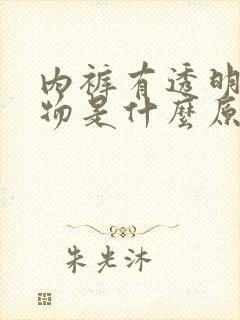 内裤有透明
物是什麼原
朱光沐